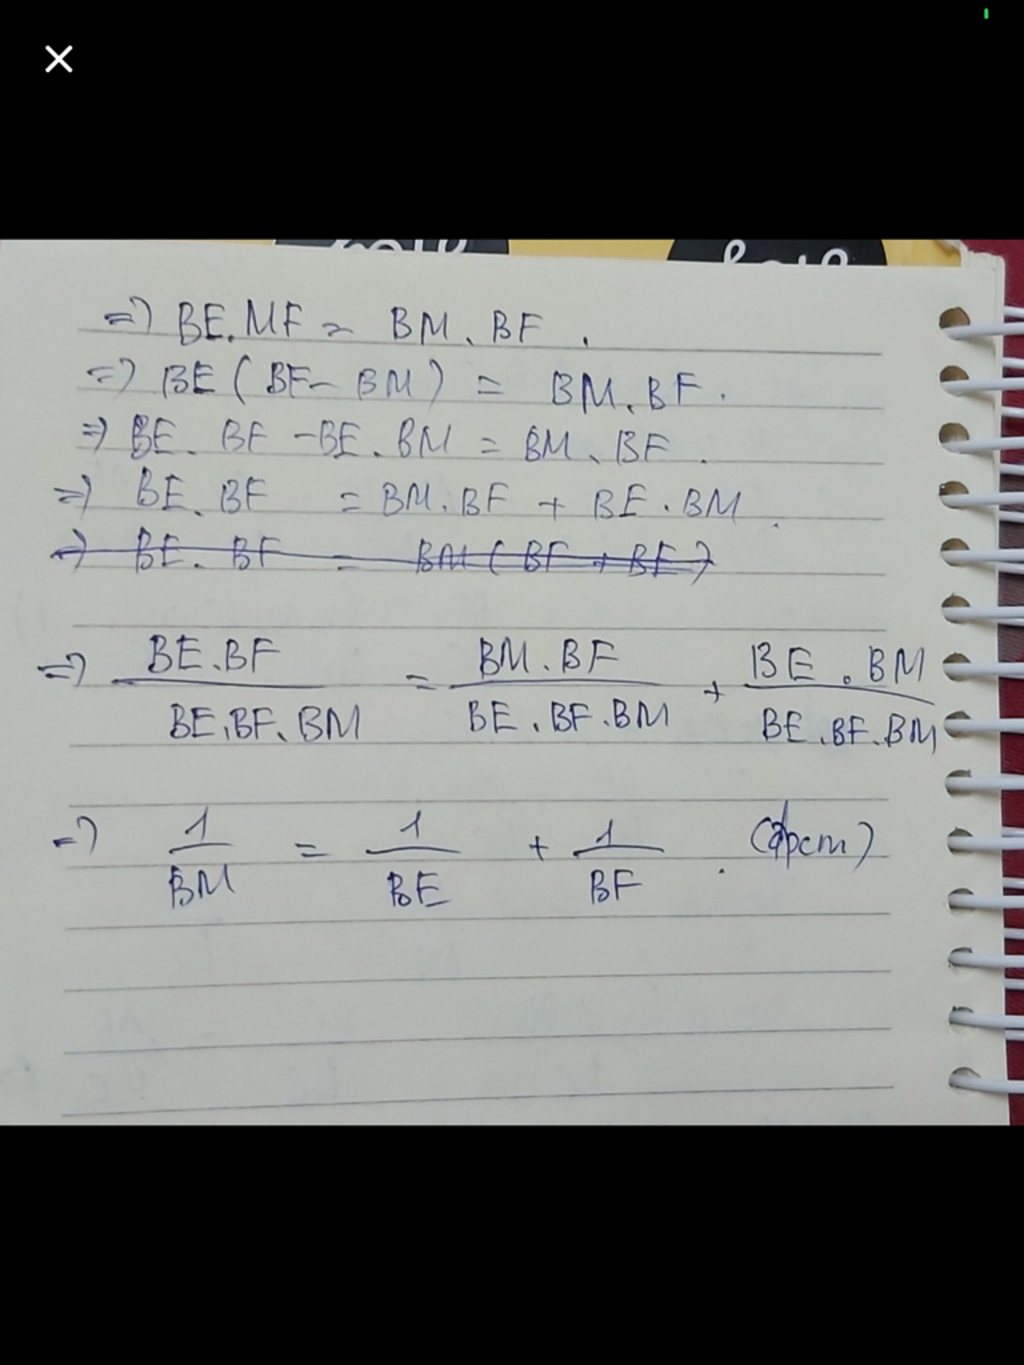 => BE.MF = BM.BF.
=> BE(BF - BM) = BM.BF.
=> BE.BF - BE.BM = BM.BF.
=> BE.BF = BM.BF + BE.BM.
=> BE.BF = BM(BF + BE)
=> BE.BF / BE.BF.BM = BM.BF / BE.BF.BM + BE.BM / BE.BF.BM
=> 1/BM = 1/BE + 1/BF. (đpcm)